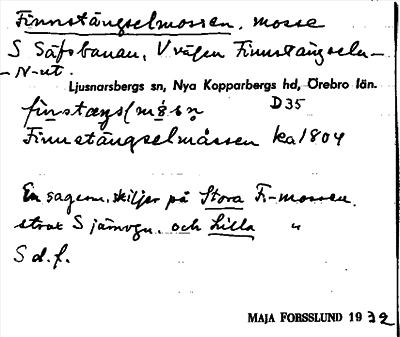 Finnstängselmossen, mosse
S Säfsbanan, V vägen Finnstängseln-
-N-ut.
Ljusnarsbergs sn, Nya Kopparbergs hd, Örebro län.
D 35
Finnstängselmåssen ka 1804
En sagesm. skiljer på Stora F-mossen.
strax S järnvgn. och Lilla "
S d.f.
MAJA FORSSLUND 1932